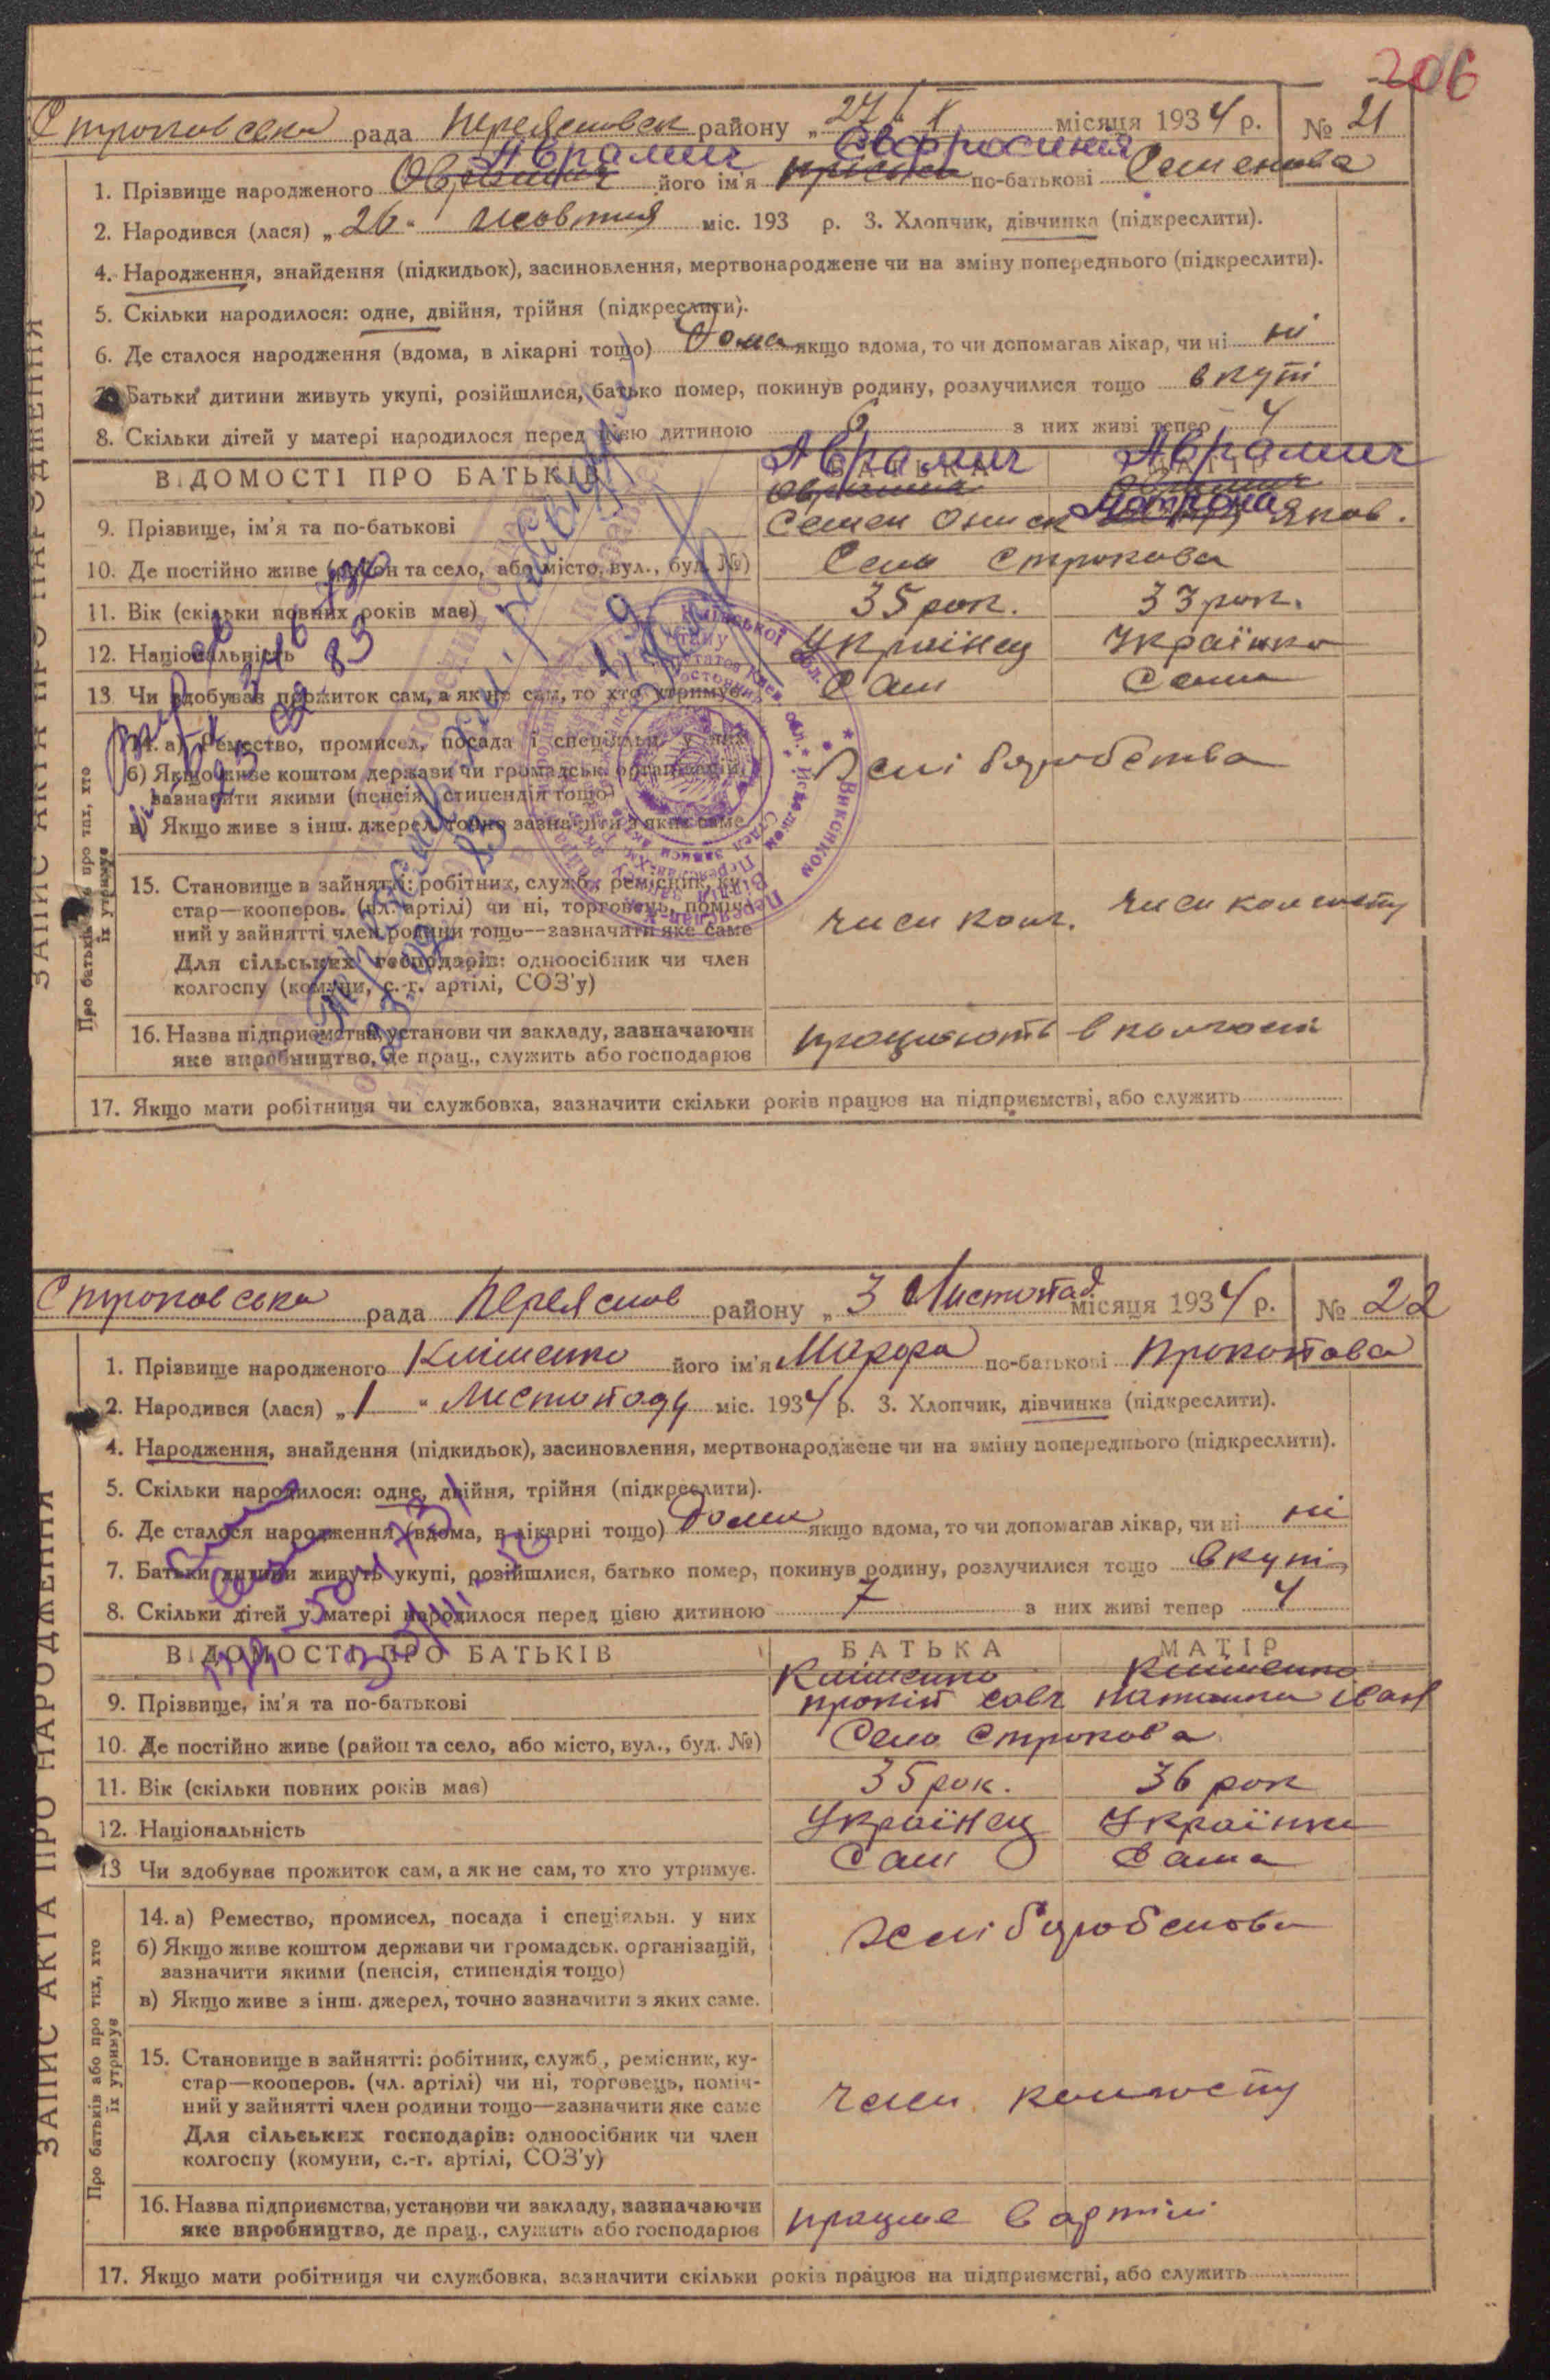 206
Строковська рада Переяславск району „27/X місяця 1934 р. № 21
Аврамич Євфросинія
1. Прізвище народженого його ім'я по-батькові Семенова
2. Народився (лася) „26“ жовтня міс. 193 р. 3. Хлопчик, дівчинка (підкреслити).
4. Народження, знайдення (підкидьок), засиновлення, мертвонароджене чи на зміну попереднього (підкреслити).
5. Скільки народилося: одне, двійня, трійня (підкреслити).
6. Де сталося народження (вдома, в лікарні тощо) Дома якщо вдома, то чи допомагав лікар, чи ні ні
7. Батьки дитини живуть укупі, розійшлися, батько помер, покинув родину, розлучилися тощо вкупі
8. Скільки дітей у матері народилося перед цією дитиною 6 з них живі тепер 4
Аврамич Аврамич
ВІДОМОСТІ ПРО БАТЬКІВ БАТЬКА МАТІР
9. Прізвище, ім'я та по-батькові Семен Ониск Мотрона Яков.
10. Де постійно живе (район та село, або місто, вул., буд. №) Село Строкова
11. Вік (скільки повних років має) 35 рок. 33 рок.
12. Національність Українец Українка
13. Чи здобуває прожиток сам, а як не сам, то хто утримує. Сам Сама
14. а) Ремество, промисел, посада і спеціяльн. у них
б) Якщо живе коштом держави чи громадськ. організацій,
зазначити якими (пенсія, стипендія тощо)
в) Якщо живе з інш. джерел, точно зазначити з яких саме.
15. Становище в зайнятті: робітник, служб., ремісник, ку-
стар—кооперов. (чл. артілі) чи ні, торговець, поміч-
ний у зайнятті член родини тощо—зазначити яке саме
Для сільських господарів: одноосібник чи член
колгоспу (комуни, с.-г. артілі, СОЗ'у)
16. Назва підприємства, установи чи закладу, зазначаючи
яке виробництво, де прац., служить або господарює
працюють в колгоспі
17. Якщо мати робітниця чи службовка, зазначити скільки років працює на підприємстві, або служить
ЗАПИС АКТА ПРО НАРОДЖЕННЯ
Строковська рада Переяслов району „3 Листопад місяця 1934 р. № 22
1. Прізвище народженого Клименко його ім'я Марфа по-батькові Прокопова
2. Народився (лася) „1“ Листопаду міс. 1934 р. 3. Хлопчик, дівчинка (підкреслити).
4. Народження, знайдення (підкидьок), засиновлення, мертвонароджене чи на зміну попереднього (підкреслити).
5. Скільки народилося: одне, двійня, трійня (підкреслити).
6. Де сталося народження (вдома, в лікарні тощо) Дома якщо вдома, то чи допомагав лікар, чи ні ні
7. Батьки дитини живуть укупі, розійшлися, батько помер, покинув родину, розлучилися тощо вкупі
8. Скільки дітей у матері народилося перед цією дитиною 7 з них живі тепер 4
ВІДОМОСТІ ПРО БАТЬКІВ БАТЬКА МАТІР
Клименко Клименко
9. Прізвище, ім'я та по-батькові Прокіп Іван
10. Де постійно живе (район та село, або місто, вул., буд. №) Село Строкова
11. Вік (скільки повних років має) 35 рок. 36 рок
12. Національність Українец Українка
13 Чи здобуває прожиток сам, а як не сам, то хто утримує. Сам Сама
14. а) Ремество, промисел, посада і спеціяльн. у них
б) Якщо живе коштом держави чи громадськ. організацій,
зазначити якими (пенсія, стипендія тощо)
в) Якщо живе з інш. джерел, точно зазначити з яких саме.
15. Становище в зайнятті: робітник, служб., ремісник, ку-
стар—кооперов. (чл. артілі) чи ні, торговець, поміч-
ний у зайнятті член родини тощо—зазначити яке саме
Для сільських господарів: одноосібник чи член
колгоспу (комуни, с.-г. артілі, СОЗ'у)
член колгоспу
16. Назва підприємства, установи чи закладу, зазначаючи
яке виробництво, де прац., служить або господарює
працює в артілі
17. Якщо мати робітниця чи службовка, зазначити скільки років працює на підприємстві, або служить
Про батьків або про тих, хто
їх утримує
ЗАПИС АКТА ПРО НАРОДЖЕННЯ